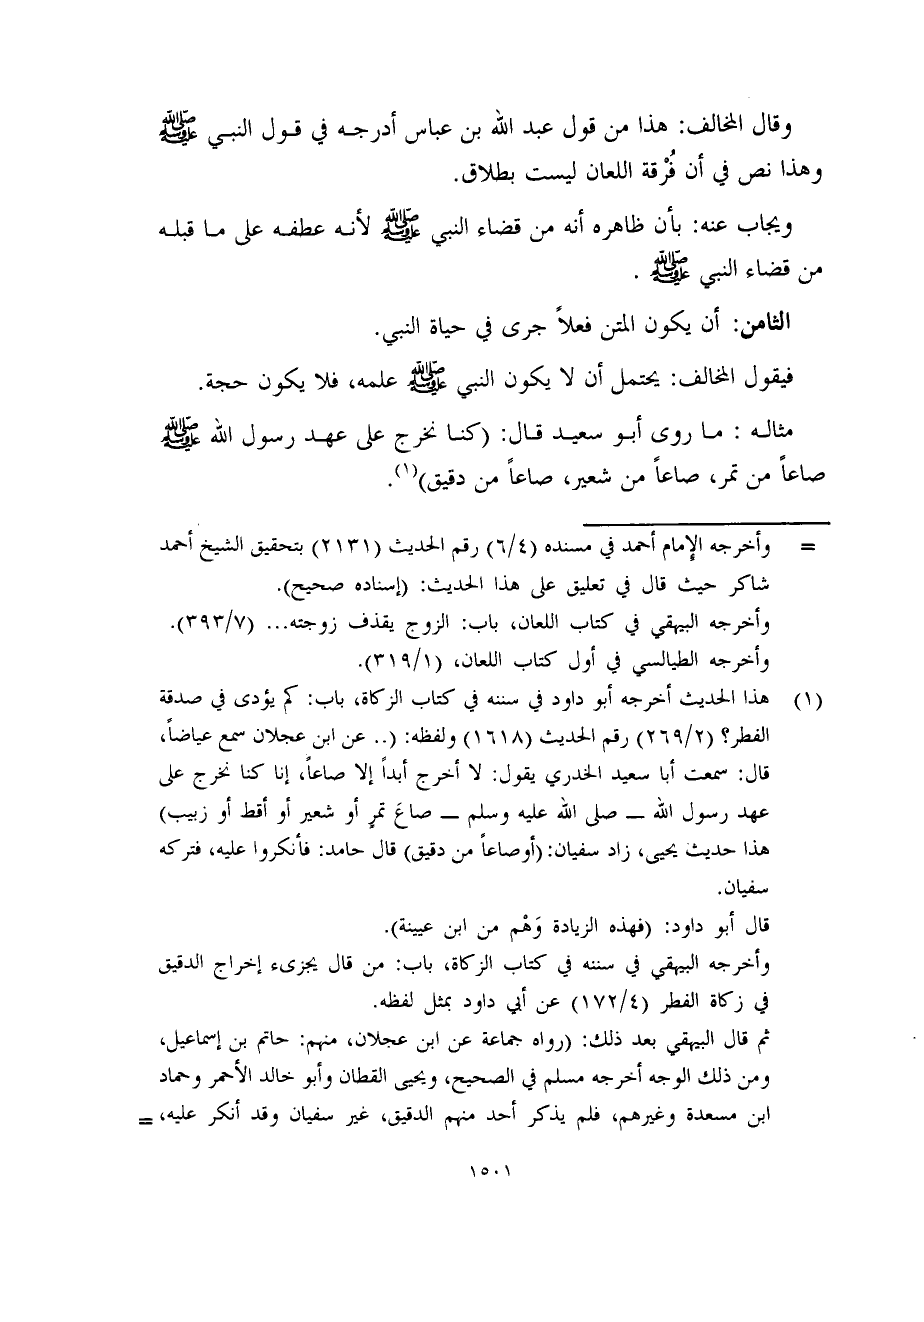 وقال المخالف: هذا من قول عبد الله بن عباس أدرجـه في قـول النبـي ﷺ
وهذا نص في أن فُرْقة اللعان ليست بطلاق.
ويجاب عنه: بأن ظاهره أنه من قضاء النبي ﷺ لأنـه عطفـه على مـا قبلـه
من قضاء النبي ﷺ .
الثامن: أن يكون المتن فعلاً جرى في حياة النبي.
فيقول المخالف: يحتمل أن لا يكون النبي ﷺ علمه، فلا يكون حجة.
مثالـه : مـا روى أبـو سعيـد قـال: (كنـا نخرج على عهـد رسول الله ﷺ
صاعاً من تمر، صاعاً من شعير، صاعاً من دقيق)(١).
= وأخرجه الإمام أحمد في مسنده (٦/٤) رقم الحديث (٢١٣١) بتحقيق الشيخ أحمد
شاكر حيث قال في تعليق على هذا الحديث: (إسناده صحيح).
وأخرجه البيهقي في كتاب اللعان، باب: الزوج يقذف زوجته... (٣٩٣/٧).
وأخرجه الطيالسي في أول كتاب اللعان، (٣١٩/١).
(١) هذا الحديث أخرجه أبو داود في سننه في كتاب الزكاة، باب: كم يؤدى في صدقة
الفطر؟ (٢٦٩/٢) رقم الحديث (١٦١٨) ولفظه: (.. عن ابن عجلان سمع عياضاً،
قال: سمعت أبا سعيد الخدري يقول: لا أخرج أبداً إلا صاعاً، إنا كنا نخرج على
عهد رسول الله ــ صلى الله عليه وسلم ــ صاعَ تمرٍ أو شعير أو أقط أو زبيب)
هذا حديث يحيى، زاد سفيان: (أوصاعاً من دقيق) قال حامد: فأنكروا عليه، فتركه
سفيان.
قال أبو داود: (فهذه الزيادة وَهْم من ابن عيينة).
وأخرجه البيهقي في سننه في كتاب الزكاة، باب: من قال يجزىء إخراج الدقيق
في زكاة الفطر (١٧٢/٤) عن أبي داود بمثل لفظه.
ثم قال البيهقي بعد ذلك: (رواه جماعة عن ابن عجلان، منهم: حاتم بن إسماعيل،
ومن ذلك الوجه أخرجه مسلم في الصحيح، ويحيى القطان وأبو خالد الأحمر وحماد
ابن مسعدة وغيرهم، فلم يذكر أحد منهم الدقيق، غير سفيان وقد أنكر عليه، =
١٥٠١